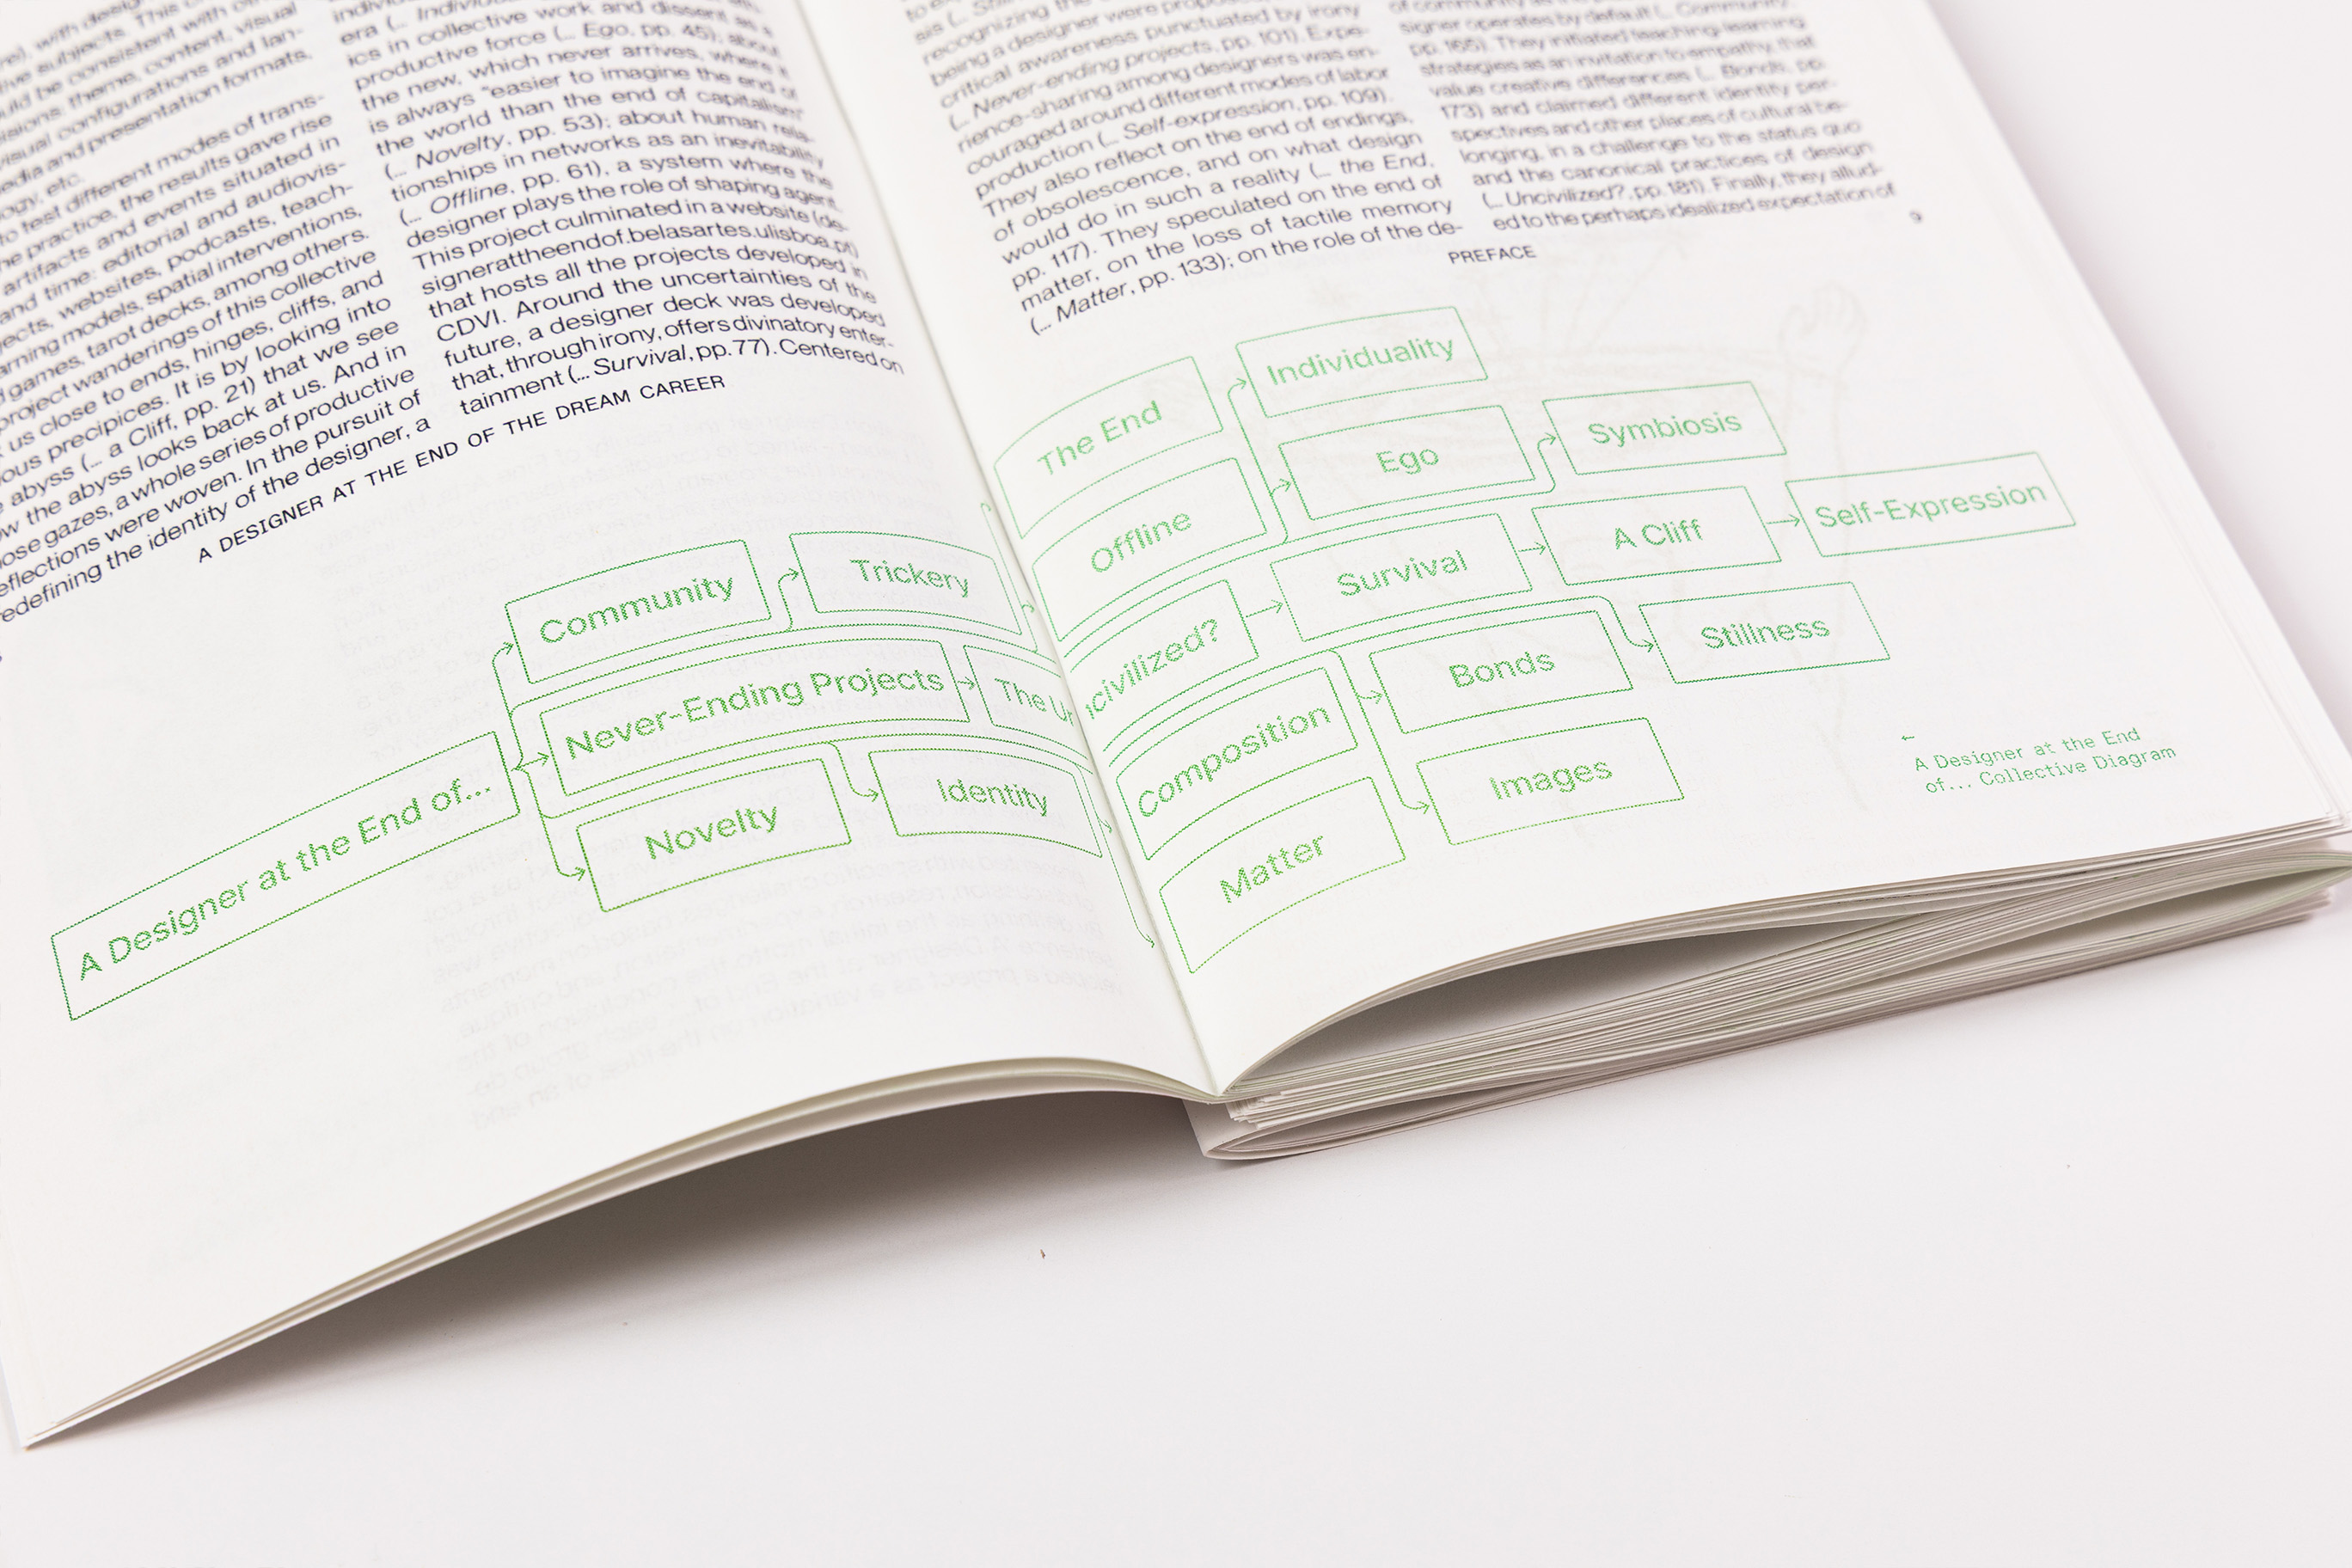 e), with design
tive subjects. This
uld be consistent with
isions: theme, content, visual
visual configurations and lan-
edia and presentation formats,
ogy, etc.
to test different modes of trans-
he practice, the results gave rise
artifacts and events situated in
and time: editorial and audiovis-
jects, websites, podcasts, teach-
arning models, spatial interventions,
d games, tarot decks, among others.
project wanderings of this collective
us close to ends, hinges, cliffs, and
ous precipices. It is by looking into
e abyss (... a Cliff, pp. 21) that we see
ow the abyss looks back at us. And in
ose gazes, a whole series of productive
eflections were woven. In the pursuit of
redefining the identity of the designer, a
era (...
ics in collective work and dissent as a
productive force (... Ego, pp. 45); about
the new, which never arrives, where it
is always "easier to imagine the end of
the world than the end of capitalism"
(... Novelty, pp. 53); about human rela-
tionships in networks as an inevitability
(... Offline, pp. 61), a system where the
designer plays the role of shaping agent.
This project culminated in a website (de-
signerattheendof.belasartes.ulisboa.pt)
that hosts all the projects developed in
CDVI. Around the uncertainties of the
future, a designer deck was developed
that, through irony, offers divinatory enter-
tainment (... Survival, pp. 77). Centered on
A DESIGNER AT THE END OF THE DREAM CAREER
sis (...
recognizing the
being a designer were proposed,
critical awareness punctuated by irony
(... Never-ending projects, pp. 101). Expe-
rience-sharing among designers was en-
couraged around different modes of labor
production (... Self-expression, pp. 109).
They also reflect on the end of endings,
of obsolescence, and on what design
would do in such a reality (... the End,
pp. 117). They speculated on the end of
matter, on the loss of tactile memory
(... Matter, pp. 133); on the role of the de-
of community as the
signer operates by default (... Community,
pp. 165). They initiated teaching-learning
strategies as an invitation to empathy, that
value creative differences (... Bonds, pp.
173) and claimed different identity per-
spectives and other places of cultural be-
longing, in a challenge to the status quo
and the canonical practices of design
(... Uncivilized?, pp. 181). Finally, they allud-
ed to the perhaps idealized expectation of
PREFACE
9
A Designer at the End of...
Community
Trickery
Never-Ending Projects
The Un
Novelty
Identity
The End
Individuality
Offline
Ego
Symbiosis
civilized?
Survival
A Cliff
Self-Expression
Composition
Bonds
Stillness
Matter
Images
←
A Designer at the End
of... Collective Diagram